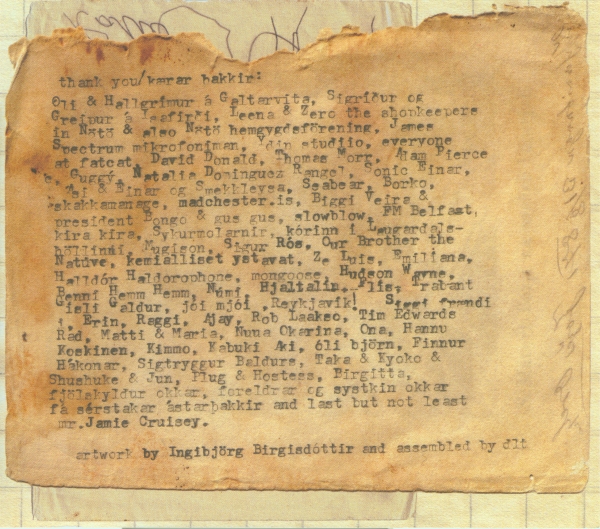 thank you/kærar þakkir:
Óli & Hallgrímur á Galtarvita, Sigríður og
Greipur á Ísafirði, Leena & Zero the shopkeepers
in Nötö & also Nötö hemgygdsförening, James
Spectrum mikrofoniman, Ydin studiio, everyone
at fatcat, David Donald, Thomas Morr, Alam Pierce
Guggý, Natalia Dominguez Rangel, Sonic Einar,
& Einar og Smekkleysa, Seabear, Borko,
skakkamanage, madchester.is, Biggi Veira &
president Bongo & gus gus, slowblow, FM Belfast,
kira kira, Sykurmolarnir, kórinn í Laugardals-
höllinni, Mugison, Sigur Rós, Our Brother the
Native, Kemialliset ystavat, Ze Luis, Emiliana,
Halldór Haldorophone, mongoose, Hudson Wayne,
Benni Hemm Hemm, Númi, Hjaltalin, Flís, Trabant
Gísli Galdur, jói mjói ,Reykjavík! Siggi frændi
, Erin, Raggi, Ajay, Rob Laakso, Tim Edwards
Rad, Matti & Maria, Nuua Okarina, Ona, Hannu
Koskinen, Kimmo, Kabuki Aki, óli björn, Finnur
Hákonar, Sigtryggur Baldurs, Taka & Kyoko &
Shushuke & Jun, Plug & Hostess, Birgitta,
fjölskyldur okkar, foreldrar og systkin okkar
fá sérstakar ástarþakkir and last but not least
mr.Jamie Cruisey.
artwork by Ingibjörg Birgisdóttir and assembled by dlt